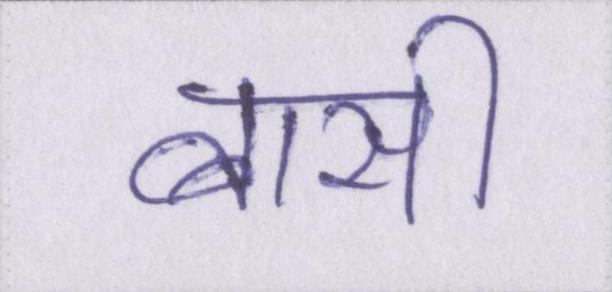 बासी